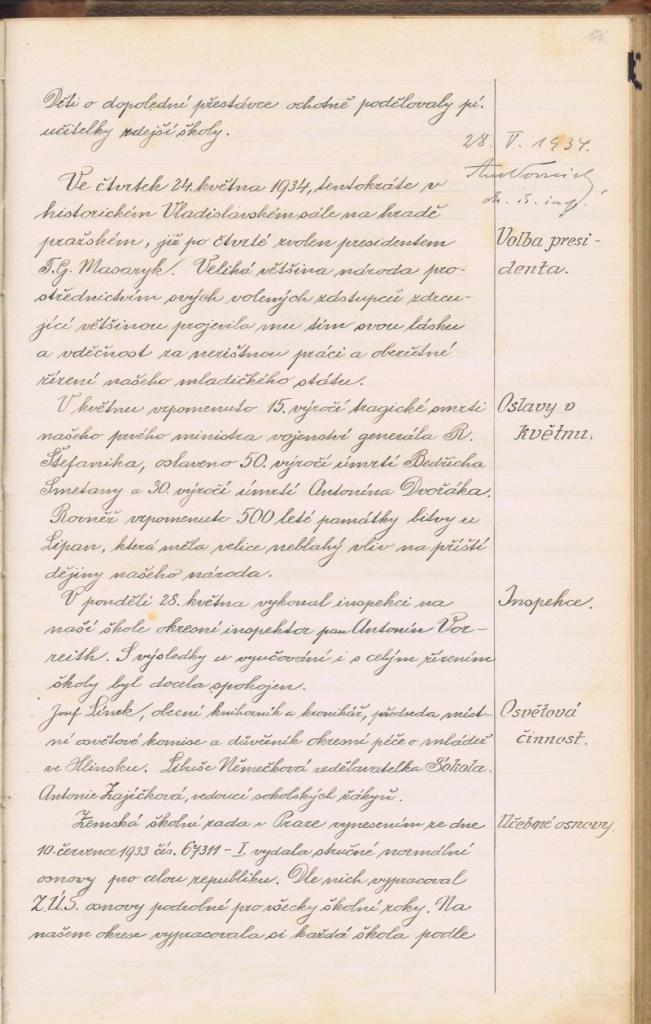 176.
Děti o dopolední přestávce ochotně podělovaly pí.
učitelky zdejší školy.
28. V. 1934.
Ant Vorreith
ok. š. insp.
Ve čtvrtek 24. května 1934, tentokráte v
historickém Vladislavském sále na hradě
pražském, již po čtvrté zvolen presidentem
T. G. Masaryk. Veliká většina národa pro-
střednictvím svých volených zástupců zdrcu-
jící většinou projevila mu tím svou lásku
a vděčnost za nezištnou práci a obezřetné
řízení našeho mladičkého státu.
Volba presi-
denta.
V květnu vzpomenuto 15. výročí tragické smrti
našeho prvého ministra vojenství generála R.
Štefanika, oslaveno 50. výročí úmrtí Bedřicha
Smetany a 30. výročí úmrtí Antonína Dvořáka.
Rovněž vzpomenuto 500 leté památky bitvy u
Lipan, která měla velice neblahý vliv na příští
dějiny našeho národa.
Oslavy v
květnu.
V pondělí 28. května vykonal inspekci na
naší škole okresní inspektor pan Antonín Vor-
reith. S výsledky u vyučování i s celým řízením
školy byl docela spokojen.
Inspekce.
Josef Línek, obecní knihovník a kronikář, předseda míst-
ní osvětové komise a důvěrník okresní péče o mládež
ve Hlinsku. Libuše Němečková vzdělavatelka Sokola.
Antonie Zajíčková, vedoucí sokolských žákyň.
Osvětová
činnost.
Zemská školní rada v Praze vynesením ze dne
10. července 1933 čís. 67311 - I. vydala stručné normální
osnovy pro celou republiku. Dle nich vypracoval
Z.Ú.S. osnovy podrobné pro všecky školní roky. Na
našem okrese vypracovala si každá škola podle
Učebné osnovy.